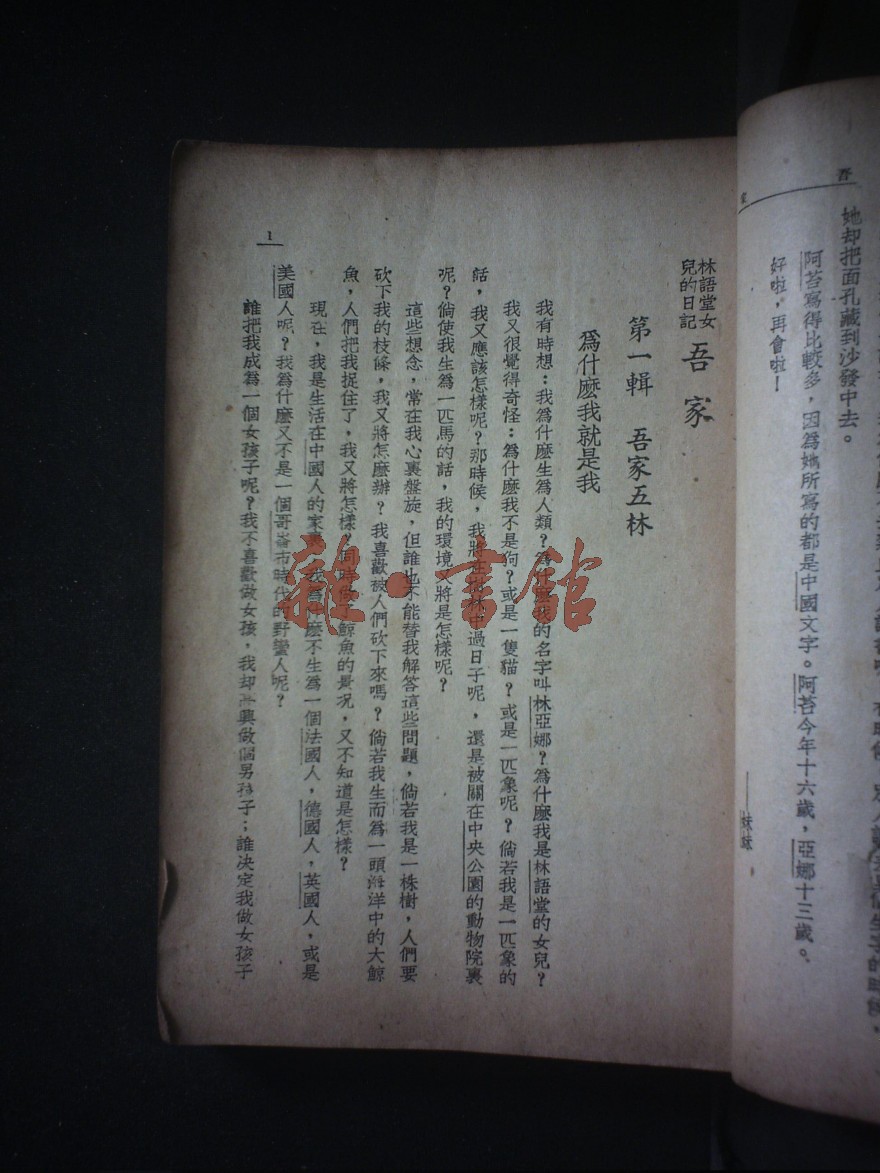 吾
家
她却把面孔藏到沙發中去。
阿苔寫得比較多，因爲她所寫的都是中國文字。阿苔今年十六歲，亞娜十三歲。
好啦，再會啦！
——妹妹
林語堂女兒的日記
吾家
第一輯 吾家五林
爲什麽我就是我
我有時想：我爲什麽生爲人類？爲什麽我的名字叫林亞娜？爲什麽我是林語堂的女兒？
我又很覺得奇怪：爲什麽我不是狗？或是一隻貓？或是一匹象呢？倘若我是一匹象的
話，我又應該怎樣呢？那時候，我將在批林中過日子呢，還是被關在中央公園的動物院裏
呢？倘使我生爲一匹馬的話，我的環境又將是怎樣呢？
這些想念，常在我心裏盤旋，但誰也不能替我解答這些問題，倘若我是一株樹，人們要
砍下我的枝條，我又將怎麽辦？我喜歡被人們砍下來嗎？倘若我生而爲一頭海洋中的大鯨
魚，人們把我捉住了，我又將怎樣？同時做了鯨魚的景况，又不知道是怎樣？
現在，我是生活在中國人的家裏，我爲什麽不生爲一個法國人，德國人，英國人，或是
美國人呢？我爲什麽又不是一個哥崙布時代的野蠻人呢？
誰把我成爲一個女孩子呢？我不喜歡做女孩，我却高興做個男孩子；誰决定我做女孩子
1
雜·書館